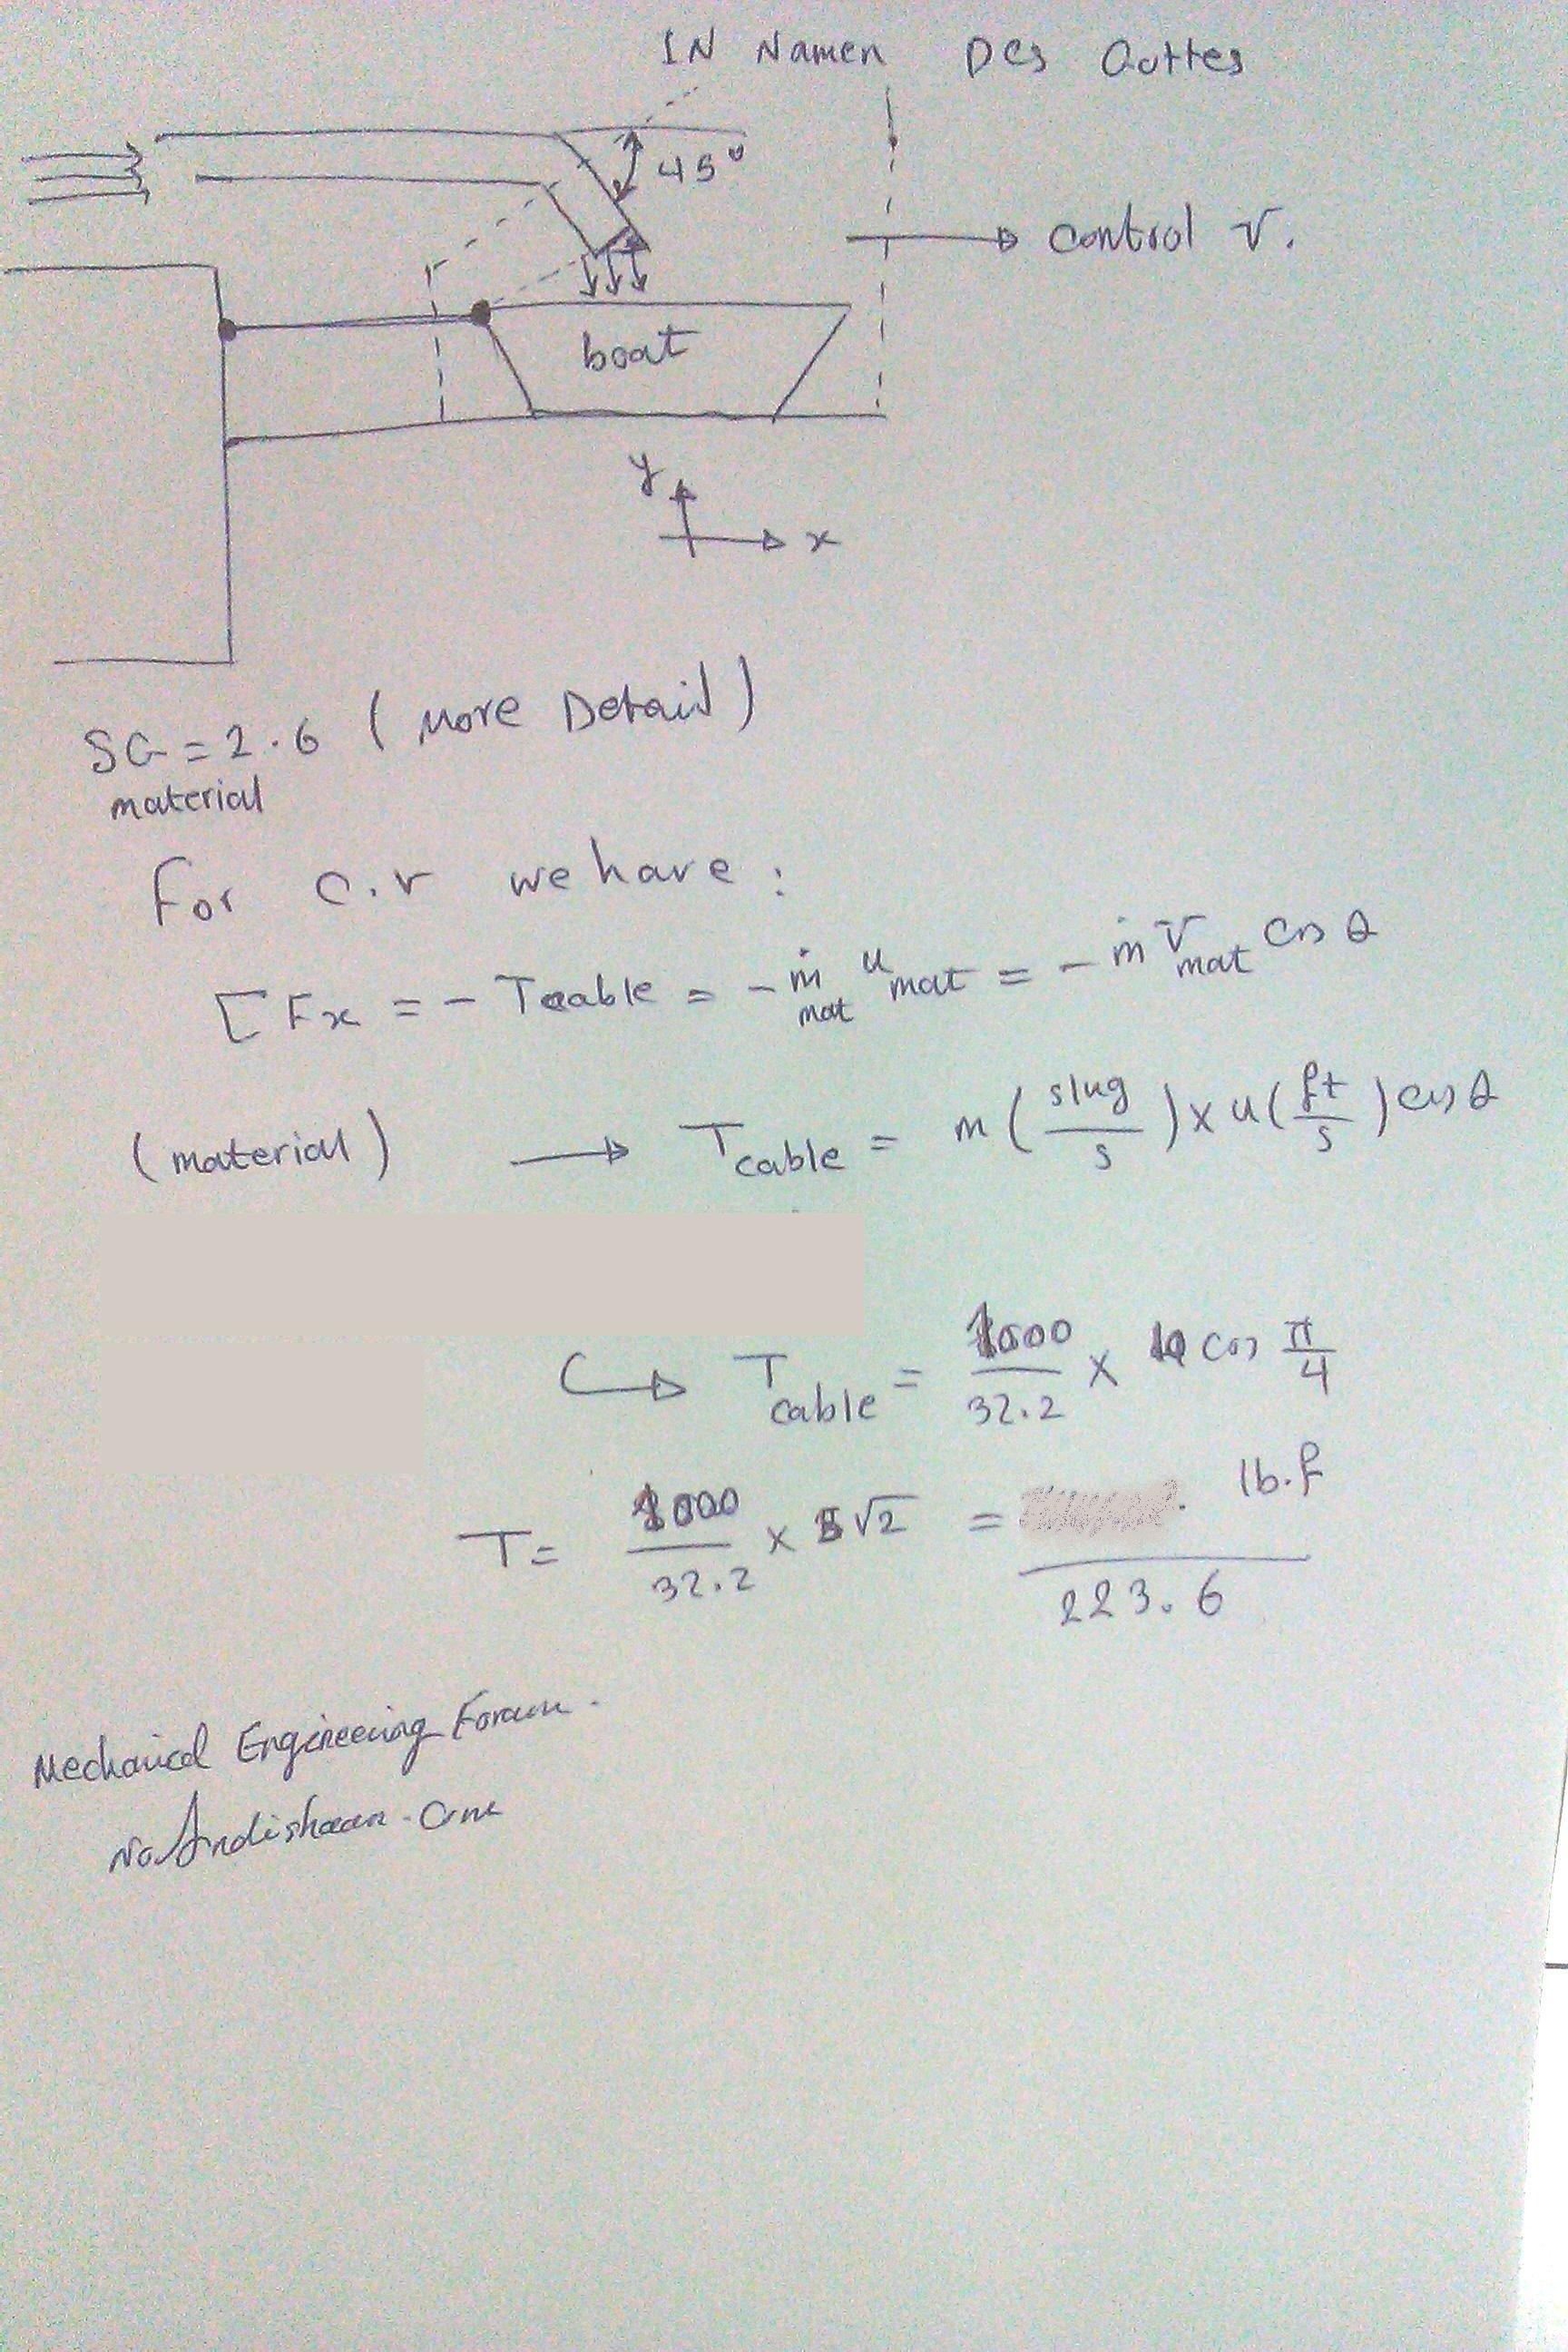 IN Namen Des Gottes
45°
control v.
boat
y
x
SG = 2.6 (More Detail)
material
For C.v we have :
ΣFx = - Tcable = - ṁmat umat = - ṁ Vmat Cos θ
(material) → Tcable = m (slug/s) × u (ft/s) cos θ
↪ Tcable = 1000/32.2 × 10 Cos π/4
T = 1000/32.2 × 5√2 = lb.f
223.6
Mechanical Engineering Forum.